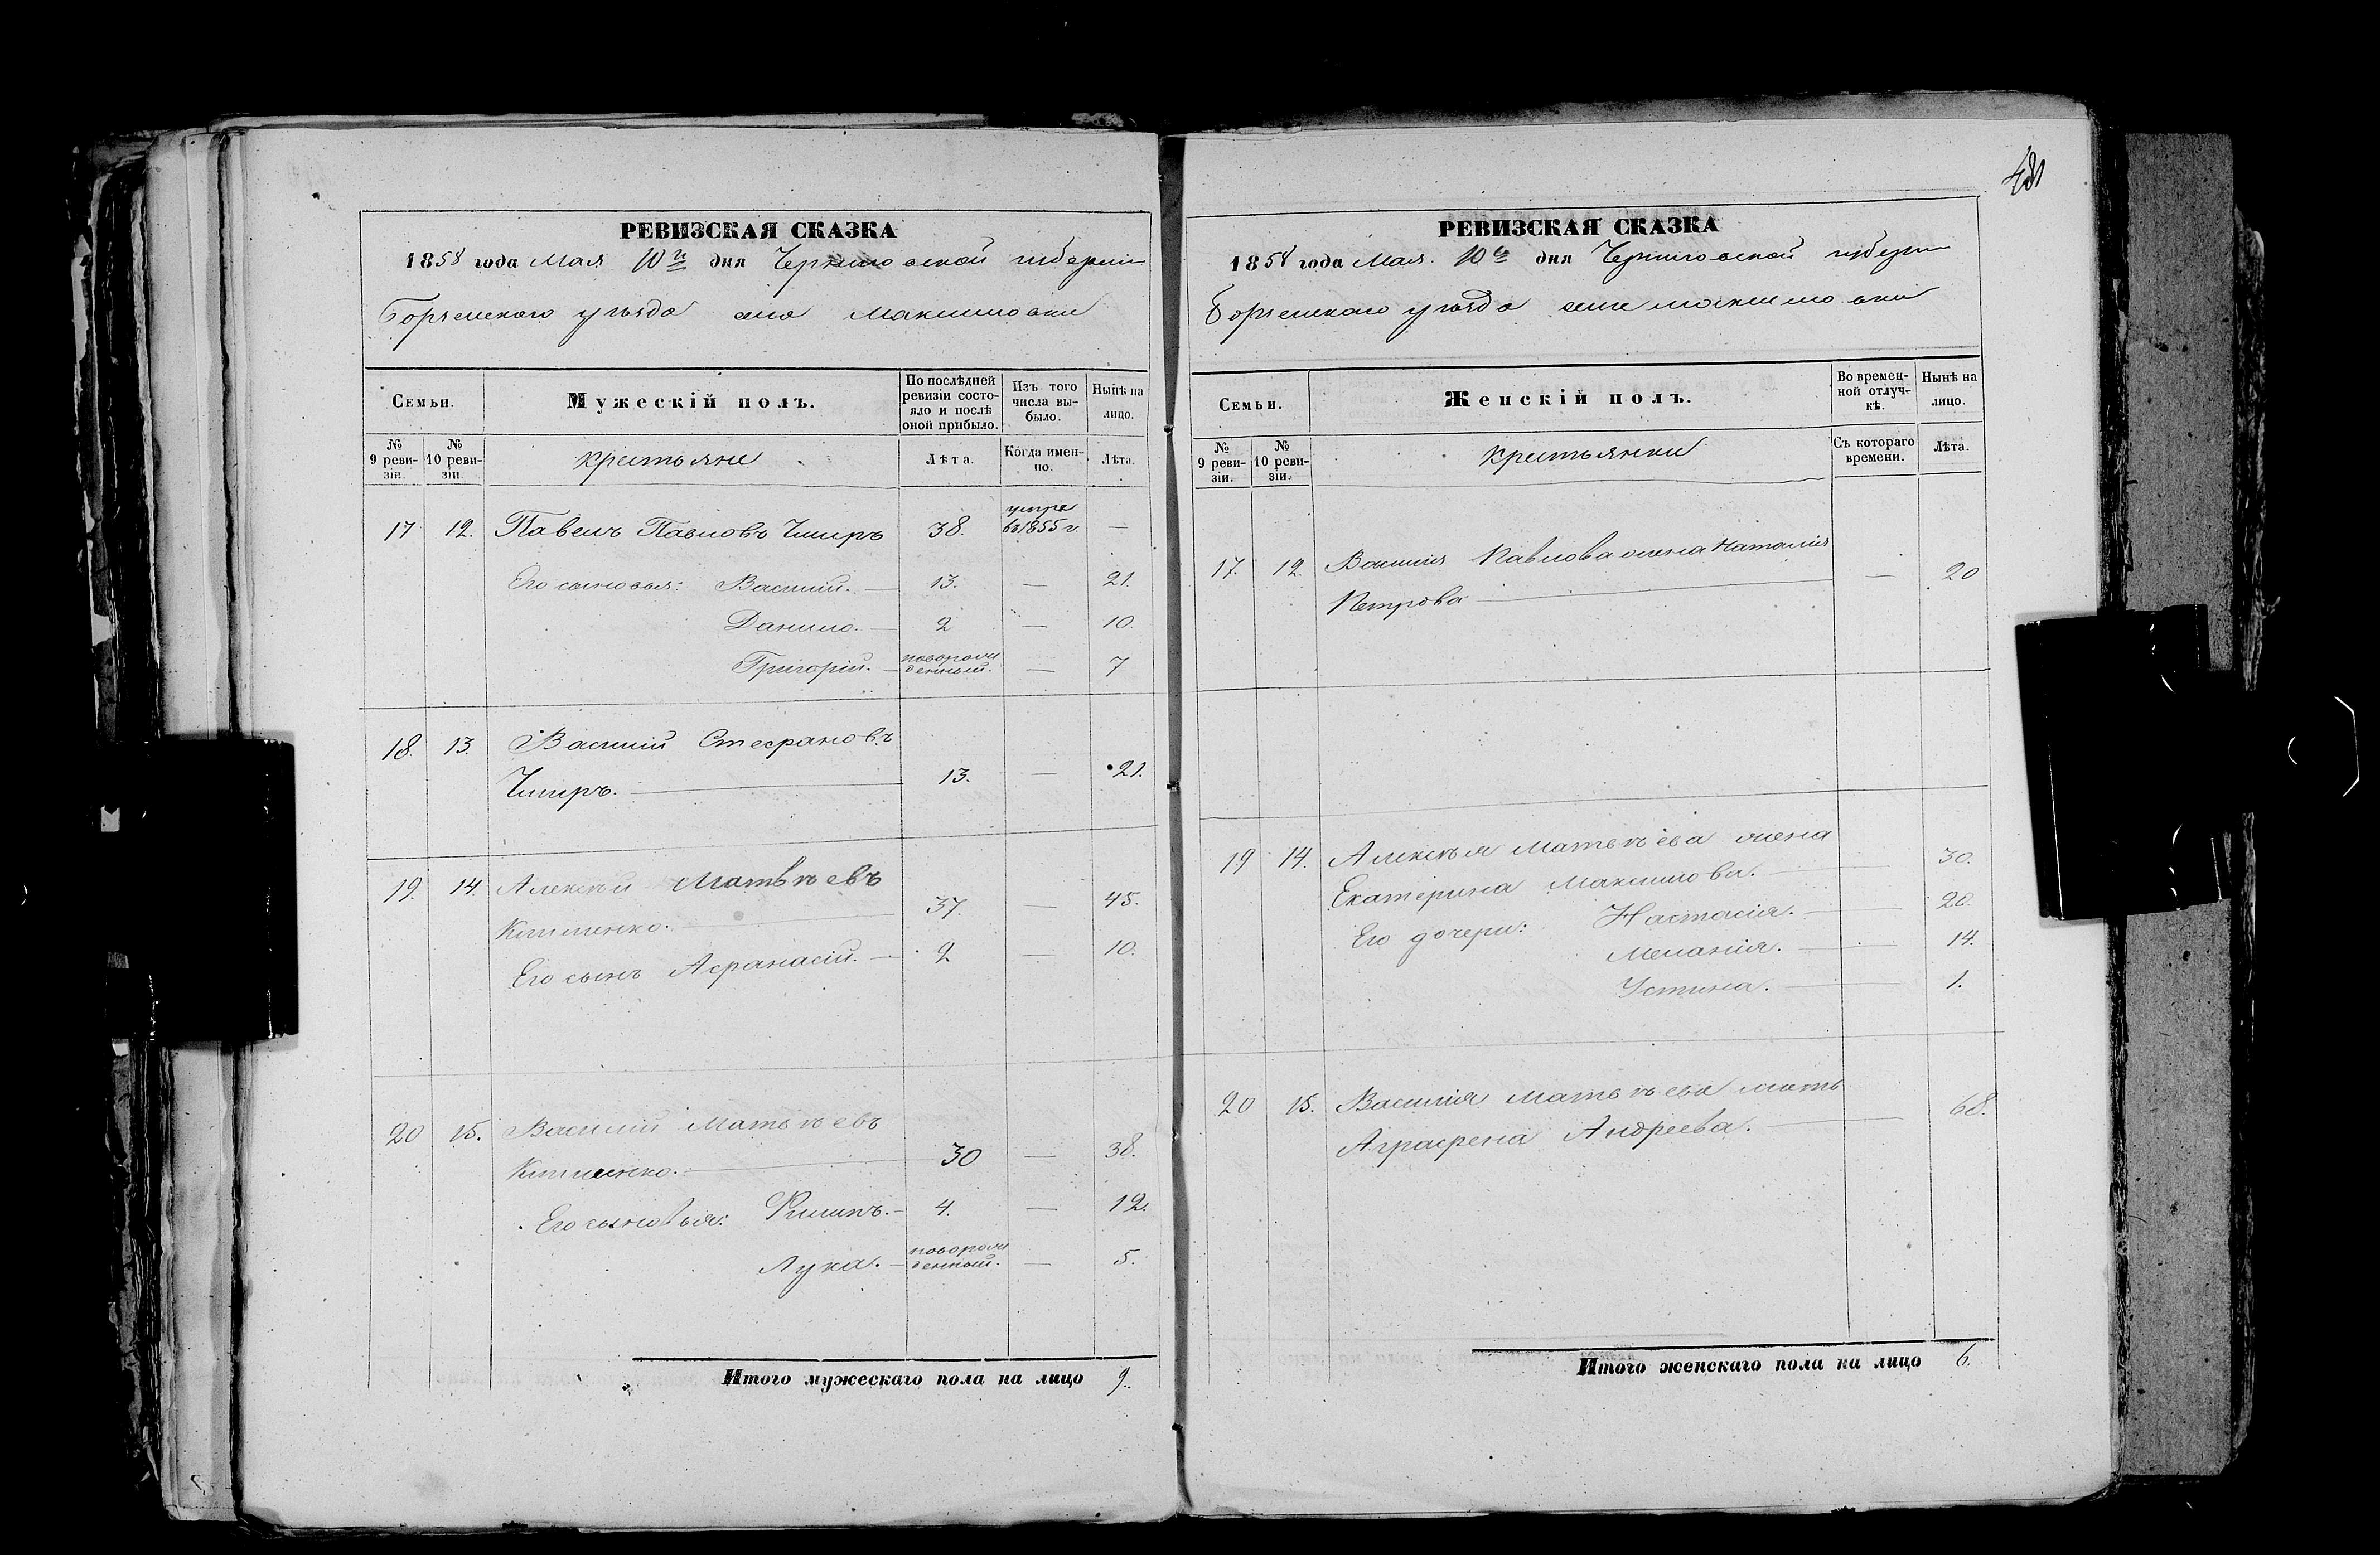 РЕВИЗСКАЯ СКАЗКА
1858 года Мая 10го дня Черниговской губернии
Борзенскаго уѣзда села Максимовки
Семьи.
Мужескій полъ.
По послѣдней ревизіи состояло и послѣ оной прибыло.
Изъ того числа выбыло.
Нынѣ на лицо.
№ 9 ревизіи.
№ 10 ревизіи.
крестьяне
Лѣта.
Когда именно.
Лѣта.
17 12. Павелъ Павловъ Чмиръ 38. умре въ 1855 г. —
Его сыновья: Василій. — 13. — 21.
Данило. — 2 — 10.
Григорій. — новорожденный. — 7
18. 13. Василій Стефановъ
Чмиръ. — 13. — 21.
19. 14. Алексѣй Матвѣевъ
Клименко. — 37. — 45.
Его сынъ Афанасій. — 2 — 10.
20 15. Василій Матвѣевъ
Клименко. — 30 — 38.
Его сыновья: Филипъ. — 4. — 12.
Лука. — новорожденный. — 5.
Итого мужескаго пола на лицо 9.
РЕВИЗСКАЯ СКАЗКА
1858 года Мая. 10го дня Черниговской губерн
Борзенскаго уѣзда села Максимовки
Семьи.
Женскій полъ.
Во временной отлучкѣ.
Нынѣ на лицо.
№ 9 ревизіи.
№ 10 ревизіи.
крестьянки
Съ котораго времени.
Лѣта.
17. 12. Василія Павлова жена Наталія
Петрова — — 20
19 14. Алексѣя Матвѣева жена
Екатерина Максимова. — 30.
Его дочери: Настасія. — 20.
Меланія. — 14.
Устина. — 1.
20 15. Василія Матвѣева мать
Аграфена Андреева. — 68.
Итого женскаго пола на лицо 6.